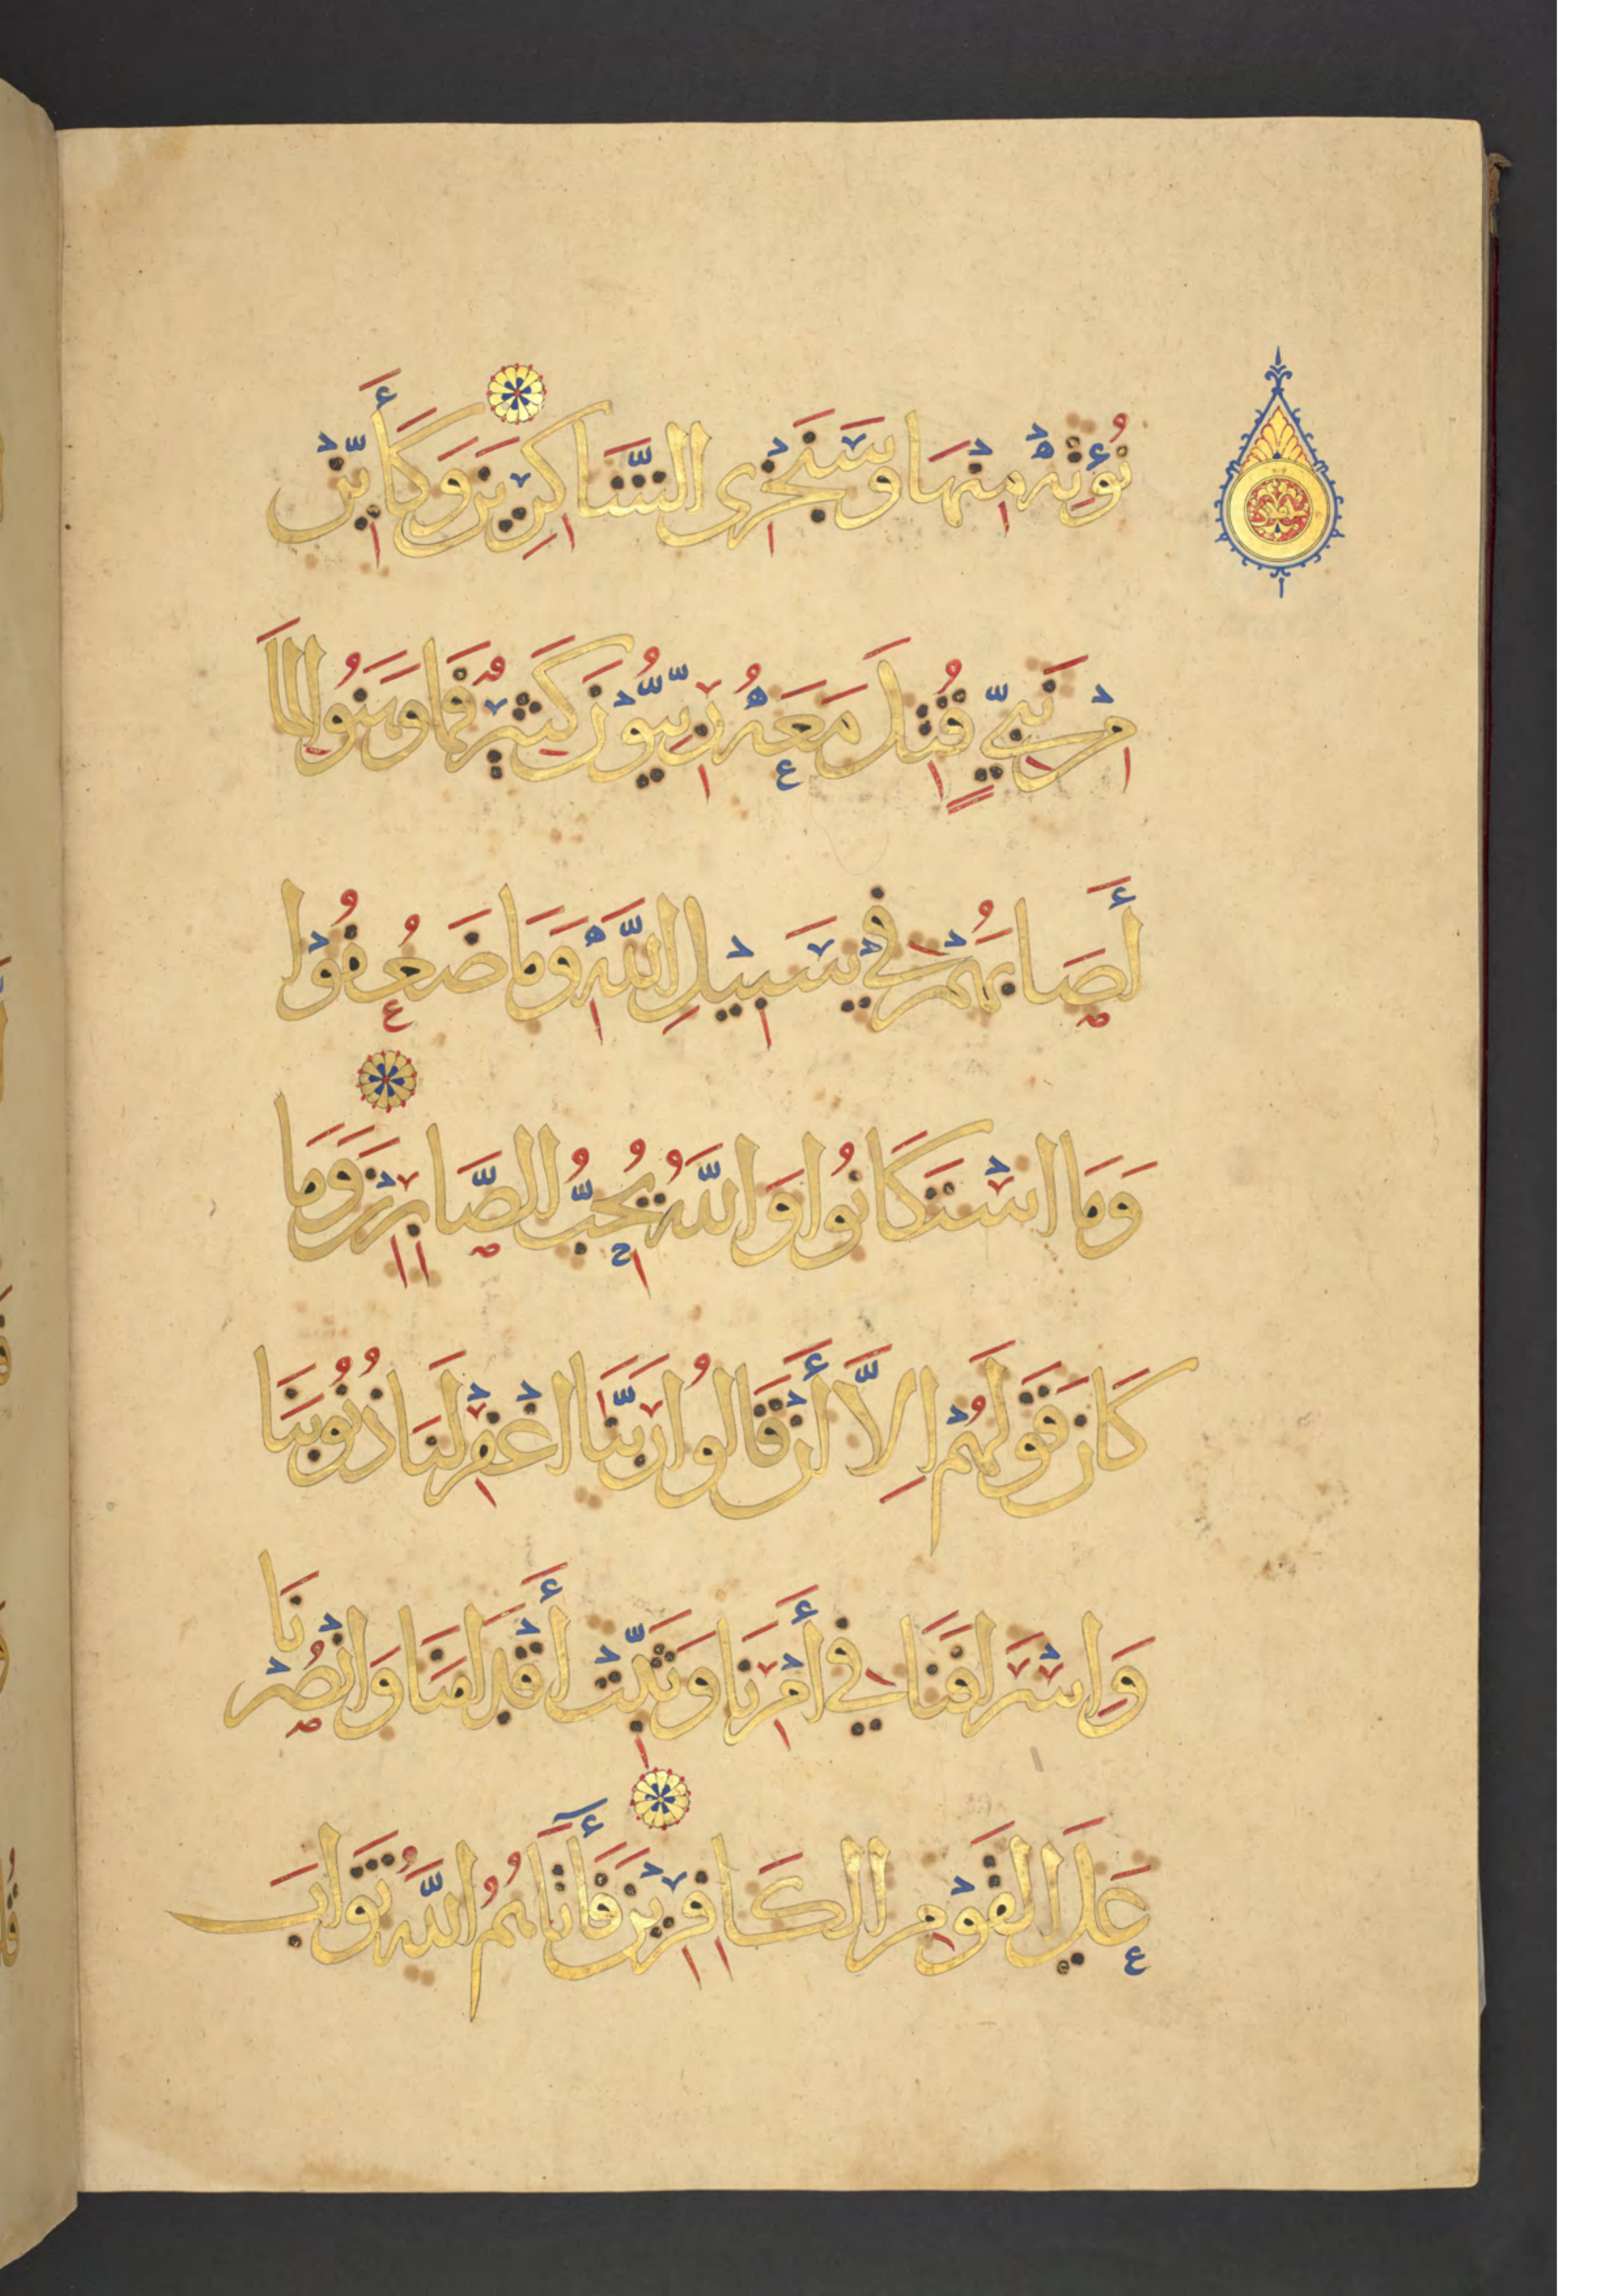 نُؤْتِهْ مِنْهَا وَسَنَجْزِى الشَّاكِرِينَ وَكَأَيِّنْ
مِنْ نَبِيٍّ قُتِلَ مَعَهُ رِبِّيُّونَ كَثِيرٌ فَمَا وَهَنُوا لِمَا
أَصَابَهُمْ فِي سَبِيلِ اللَّهِ وَمَا ضَعُفُوْا
وَمَا اسْتَكَانُوا وَاللَّهُ يُحِبُّ الصَّابِرِيْنَ وَمَا
كَانَ قَوْلَهُمْ اِلَّا أَنْ قَالُوا رَبَّنَا اغْفِرْ لَنَا ذُنُوبَنَا
وَاِسْرَافَنَا فِي أَمْرِنَا وَثَبِّتْ أَقْدَامَنَا وَانْصُرْنَا
عَلَي القَوْمِ الكَافِرِيْنَ فَأَتَاهُمُ اللَّهُ ثَوَابَ